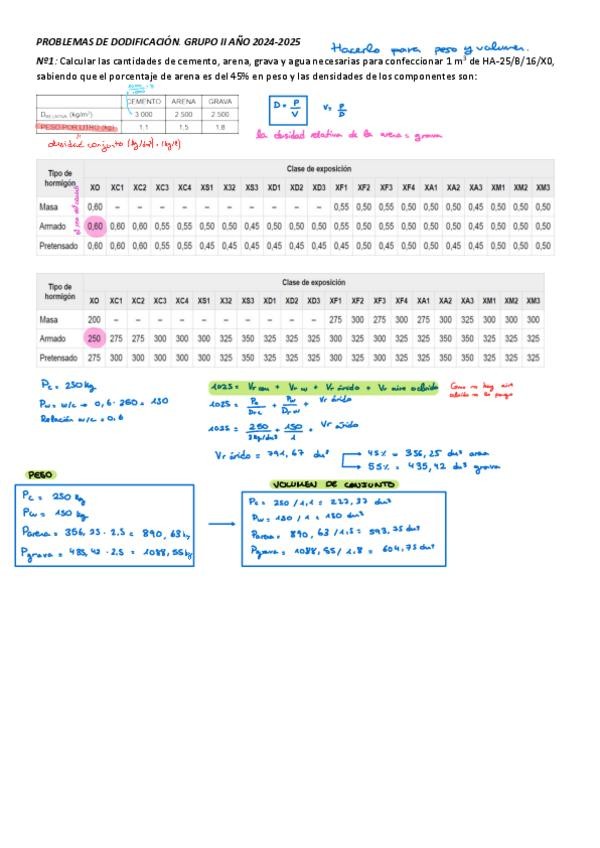 PROBLEMAS DE DODIFICACIÓN. GRUPO II AÑO 2024-2025
Hacerlo para peso y volumen.
Nº1: Calcular las cantidades de cemento, arena, grava y agua necesarias para confeccionar 1 m³ de HA-25/B/16/X0,
sabiendo que el porcentaje de arena es del 45% en peso y las densidades de los componentes son:
CEMENTO ARENA GRAVA
DRELATIVA (kg/m³) 3 000 2 500 2.500
PESO POR LITRO (kg) 1.1 1,5 1.8
D = P/V
V = P/D
la densidad relativa de la arena = grava
densidad conjunto (kg/dm³) = (kg/l)
Tipo de hormigón Clase de exposición
XO XC1 XC2 XC3 XC4 XS1 X32 XS3 XD1 XD2 XD3 XF1 XF2 XF3 XF4 XA1 XA2 XA3 XM1 XM2 XM3
Masa 0,60 – – – – – – – – – – 0,55 0,50 0,55 0,50 0,50 0,50 0,45 0,50 0,50 0,50
Armado 0,60 0,60 0,60 0,55 0,55 0,50 0,50 0,45 0,50 0,50 0,50 0,55 0,50 0,55 0,50 0,50 0,50 0,45 0,50 0,50 0,50
Pretensado 0,60 0,60 0,60 0,55 0,55 0,45 0,45 0,45 0,45 0,45 0,45 0,50 0,50 0,50 0,50 0,50 0,45 0,45 0,50 0,50 0,50
Tipo de hormigón Clase de exposición
XO XC1 XC2 XC3 XC4 XS1 X32 XS3 XD1 XD2 XD3 XF1 XF2 XF3 XF4 XA1 XA2 XA3 XM1 XM2 XM3
Masa 200 – – – – – – – – – – 275 300 275 300 275 300 325 300 300 300
Armado 250 275 275 300 300 300 325 350 325 325 325 300 325 300 325 325 350 350 325 325 325
Pretensado 275 300 300 300 300 300 325 350 325 325 325 300 325 300 325 325 350 350 325 325 325
Pc = 250 kg
Pw = w/c → 0,6 · 250 = 150
Relación w/c = 0,6
1025 = Vr cem + Vr w + Vr árido + Vr aire ocluido
Como no hay aire
ocluido no lo pongo
1025 = Pc/Dr c + Pw/Dr w + Vr árido
1025 = 250/3kg/dm³ + 150/1 + Vr árido
Vr árido = 791,67 dm³
45% = 356,25 dm³ arena
55% = 435,42 dm³ grava
PESO
Pc = 250 kg
Pw = 150 kg
Parena = 356,25 · 2,5 = 890,63 kg
Pgrava = 435,42 · 2.5 = 1088,55 kg
VOLUMEN DE CONJUNTO
Pc = 250 / 1,1 = 227,27 dm³
Pw = 150 / 1 = 150 dm³
Parena = 890,63 / 1,5 = 593,75 dm³
Pgrava = 1088,55 / 1,8 = 604,75 dm³